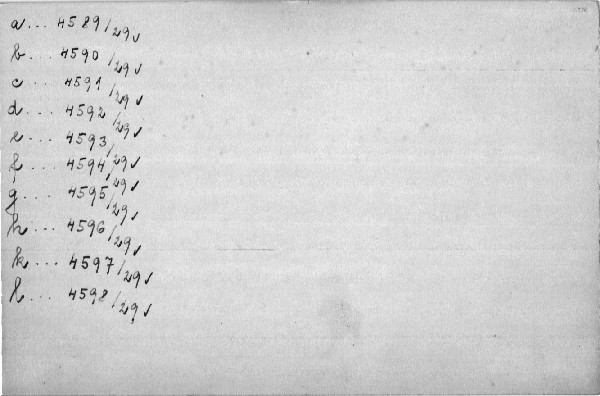 a... 4589/29 ✓
b... 4590/29 ✓
c... 4591/29 ✓
d... 4592/29 ✓
e... 4593/29 ✓
f... 4594/29 ✓
g... 4595/29 ✓
h... 4596/29 ✓
k... 4597/29 ✓
l... 4598/29 ✓